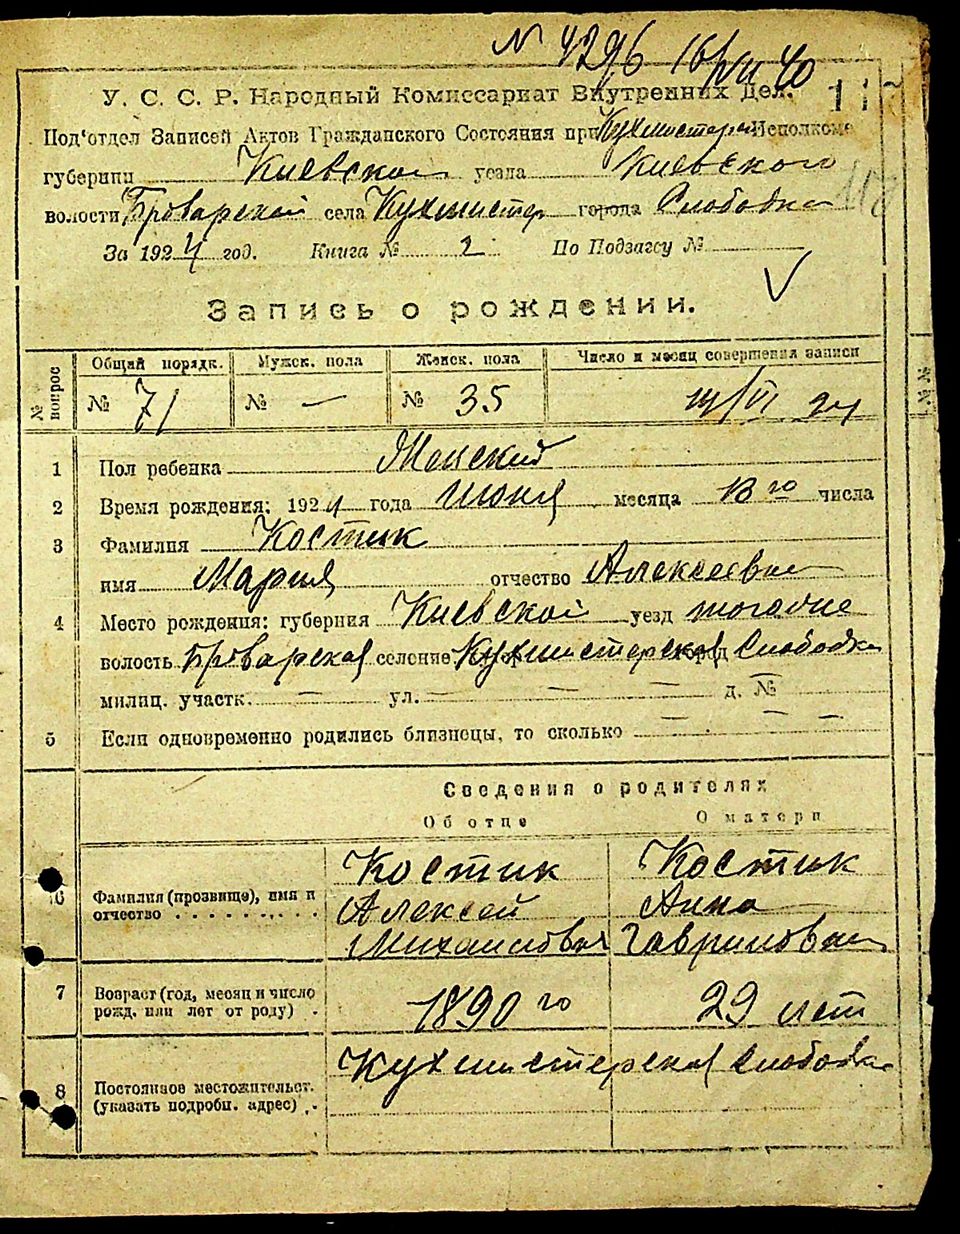 № 4296 16/VII 40
У. С. С. Р. Народный Комиссариат Внутренних Дел.
Под'отдел Записей Актов Гражданского Состояния при Кухмистерск Исполкоме
губернии Киевской уезда Киевского
118
волости Броварской села Кухмистер города Слободка
За 1924 год. Книга № 2 По Подзагсу №
Запись о рождении.
№ вопрос Общий порядк. Мужск. пола Женск. пола Число и месяц совершения записи
№ 71 № — № 35 /VI 24
1 Пол ребенка Женский
2 Время рождения: 1924 года Июня месяца 13 го числа
3 Фамилия Костик
имя Мария отчество Алексеевна
4 Место рождения: губерния Киевской уезд тогоже
волость Броварская селение Кухмистерская город Слободка
милиц. участк. — ул. — — д. № —
5 Если одновременно родились близнецы, то сколько — — —
Сведения о родителях
Об отце О матери
6 Фамилия (прозвище), имя и отчество Костик Костик
Алексей Анна
Михайлович Гавриловна
7 Возраст (год, месяц и число рожд. или лет от роду) 1890 го 29 лет
8 Постоянное местожительст. (указать подробн. адрес) Кухмистерская Слободка